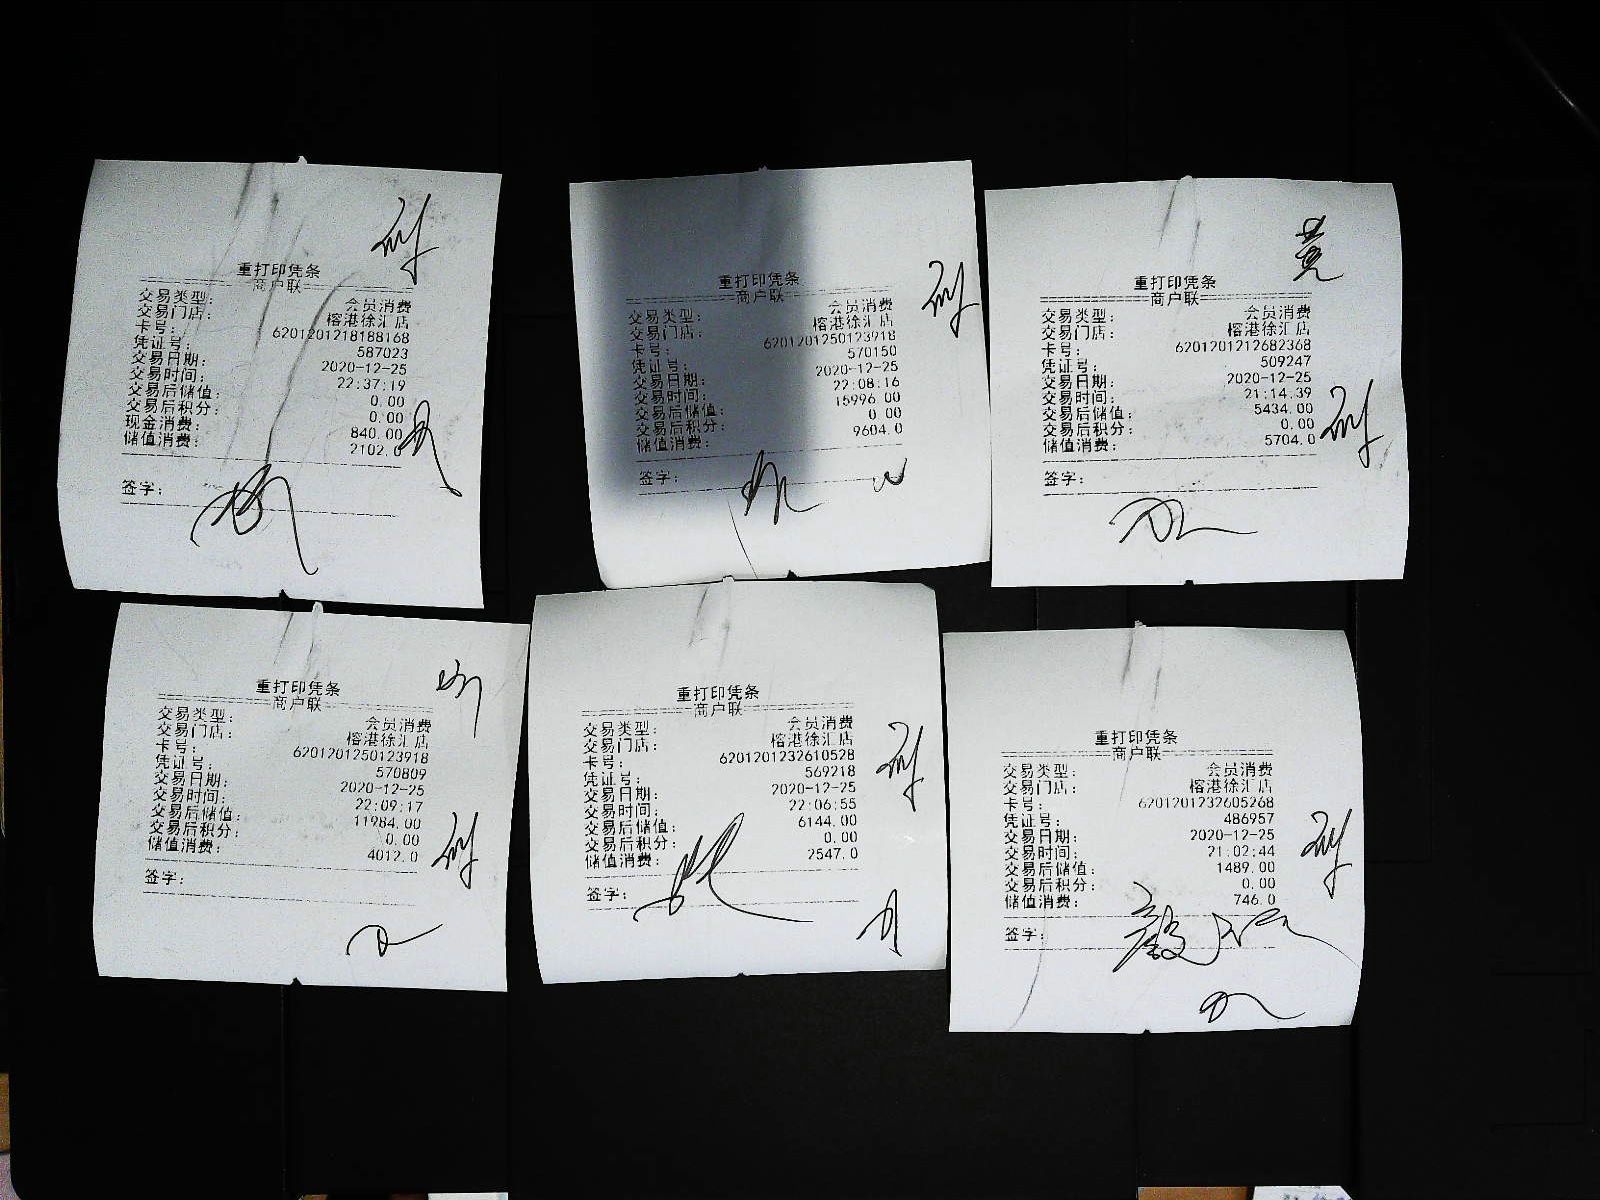 重打印凭条
商户联
交易类型: 会员消费
交易门店: 榕港徐汇店
卡号: 6201201218188168
凭证号: 587023
交易日期: 2020-12-25
交易时间: 22:37:19
交易后储值: 0.00
交易后积分: 0.00
现金消费: 840.00
储值消费: 2102.0
签字:
重打印凭条
商户联
交易类型: 会员消费
交易门店: 榕港徐汇店
卡号: 6201201250123918
凭证号: 570150
交易日期: 2020-12-25
交易时间: 22:08:16
交易后储值: 15996.00
交易后积分: 0.00
储值消费: 9604.0
签字:
黄
重打印凭条
商户联
交易类型: 会员消费
交易门店: 榕港徐汇店
卡号: 6201201212682368
凭证号: 509247
交易日期: 2020-12-25
交易时间: 21:14:39
交易后储值: 5434.00
交易后积分: 0.00
储值消费: 5704.0
签字:
重打印凭条
商户联
交易类型: 会员消费
交易门店: 榕港徐汇店
卡号: 6201201250123918
凭证号: 570809
交易日期: 2020-12-25
交易时间: 22:09:17
交易后储值: 11984.00
交易后积分: 0.00
储值消费: 4012.0
签字:
重打印凭条
商户联
交易类型: 会员消费
交易门店: 榕港徐汇店
卡号: 6201201232610528
凭证号: 569218
交易日期: 2020-12-25
交易时间: 22:06:55
交易后储值: 6144.00
交易后积分: 0.00
储值消费: 2547.0
签字:
重打印凭条
商户联
交易类型: 会员消费
交易门店: 榕港徐汇店
卡号: 6201201232605268
凭证号: 486957
交易日期: 2020-12-25
交易时间: 21:02:44
交易后储值: 1489.00
交易后积分: 0.00
储值消费: 746.0
签字: